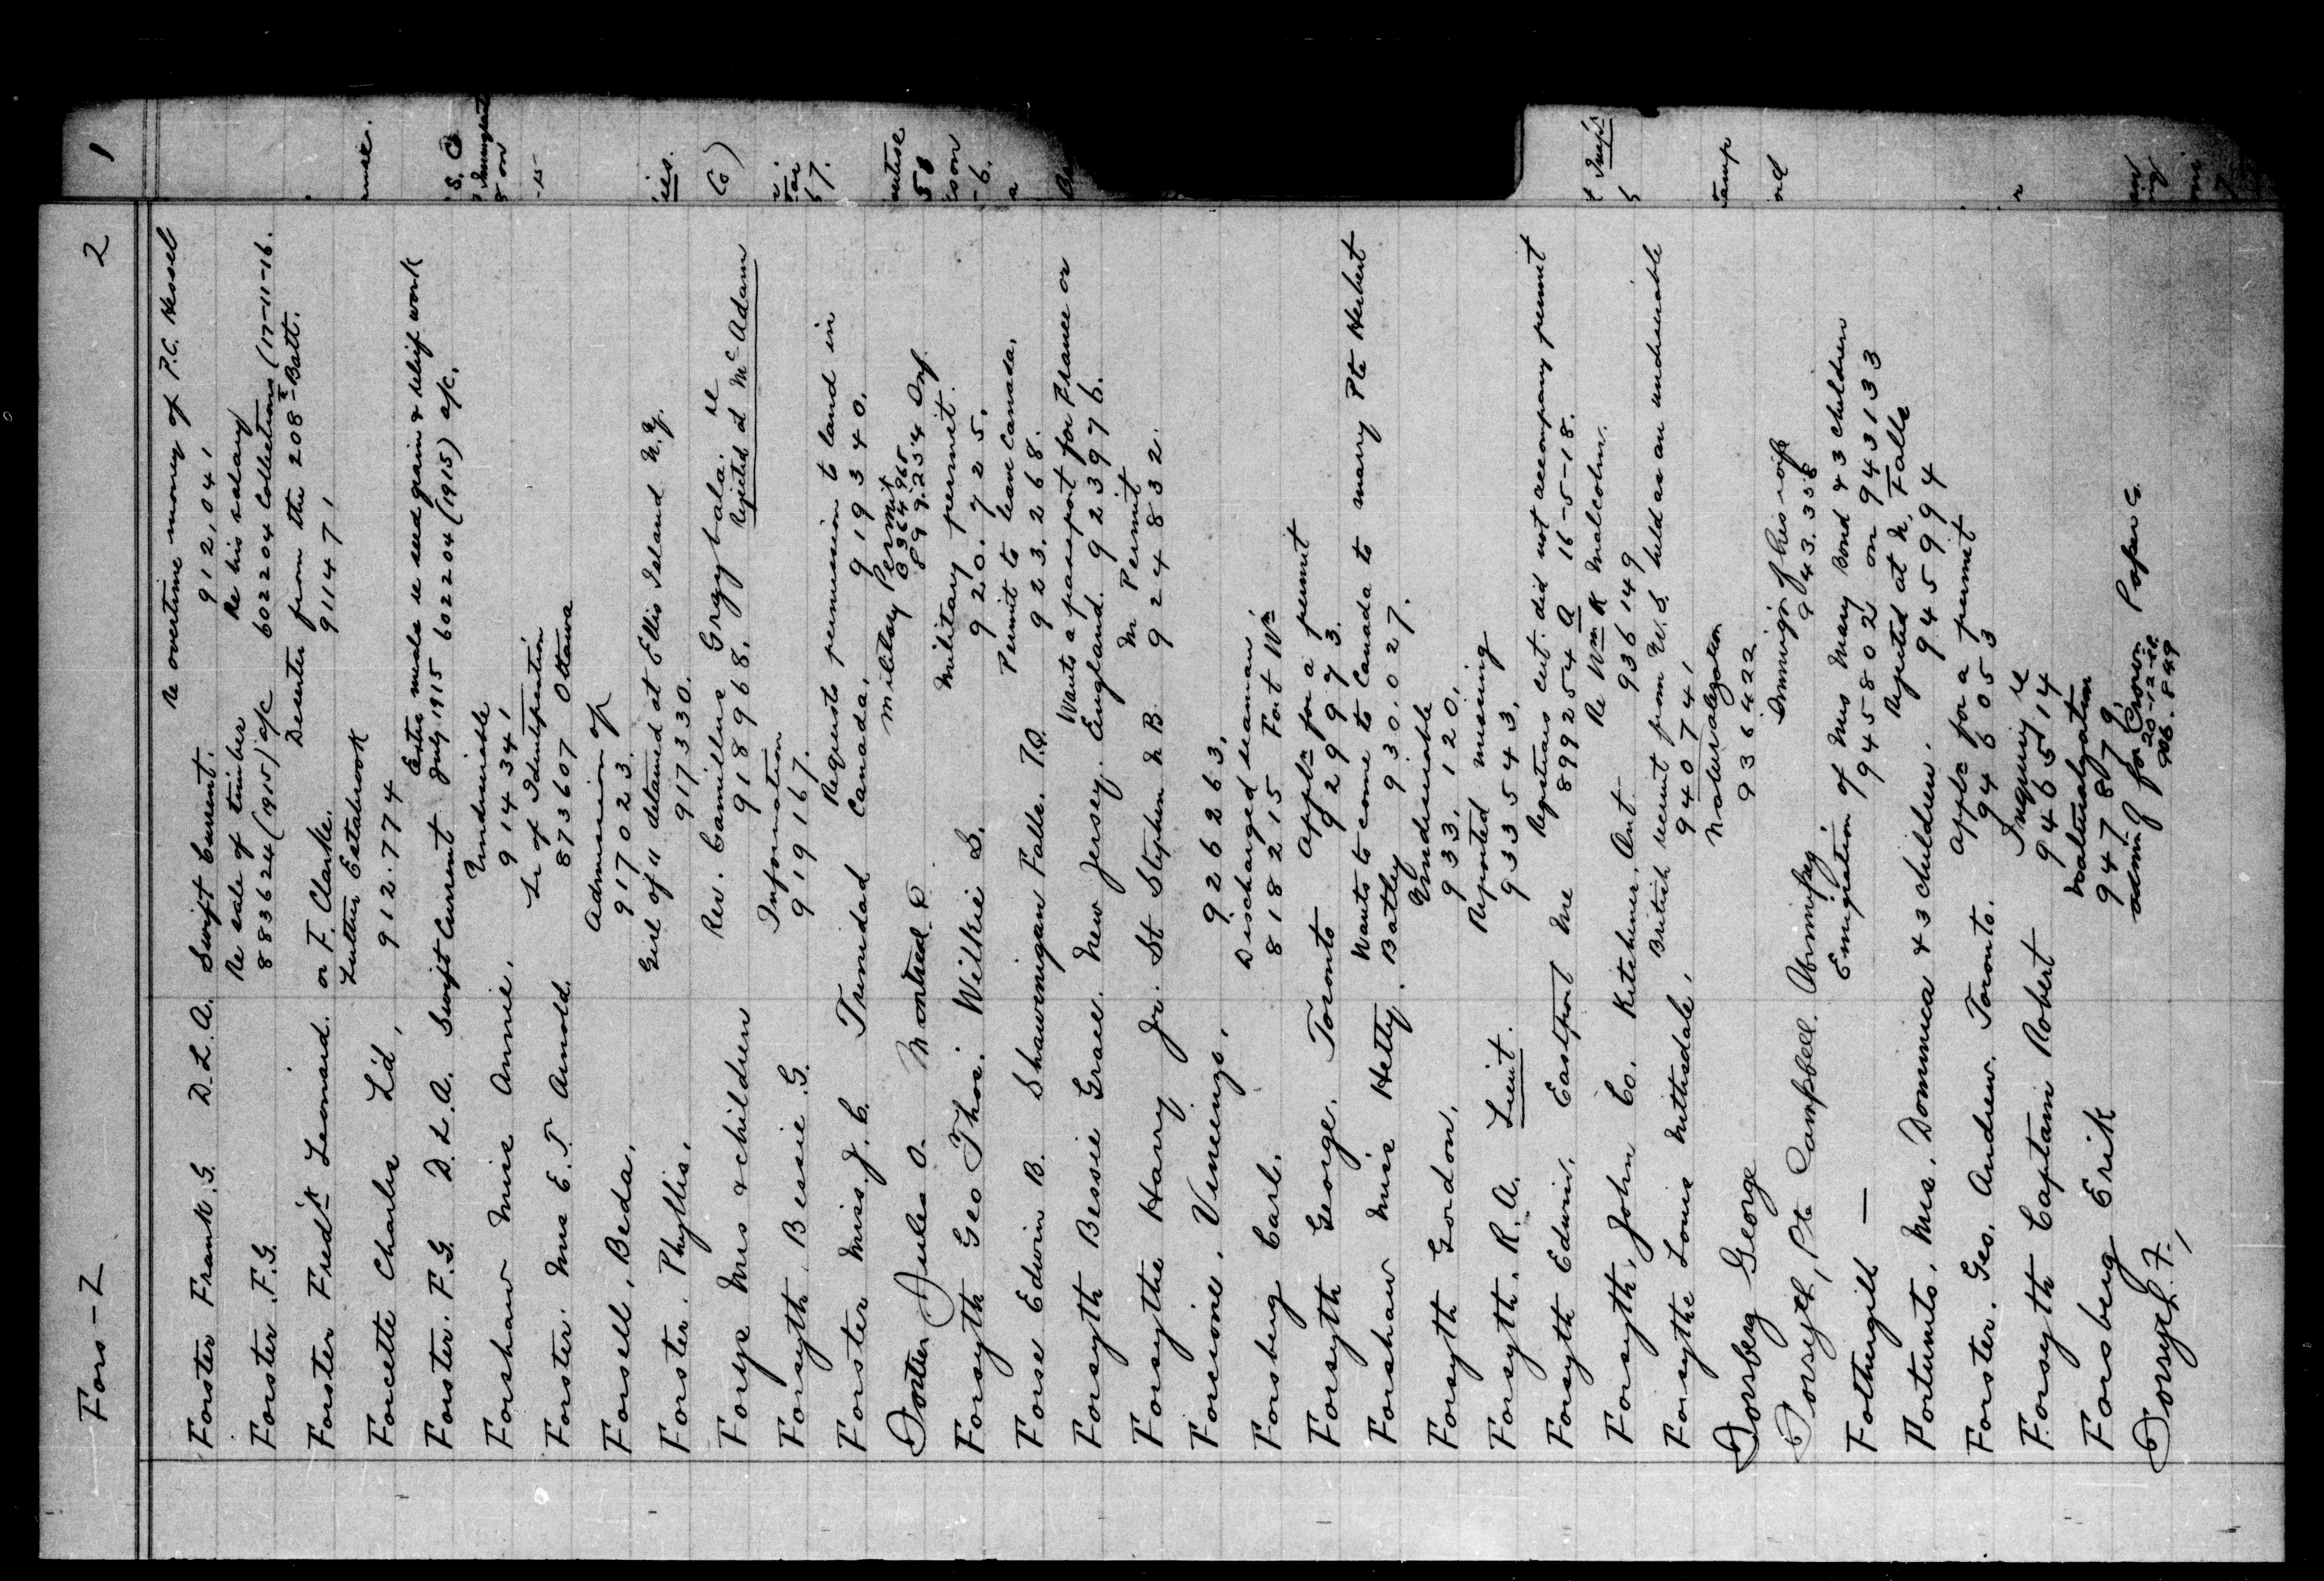 Fors-2 2
Re overtime money of P.C. Vessel
Forster Frank. G. D. L. A. Swift Current. 912,041
Re sale of timber Re his salary
Forster. F.G. 883624 (1915) a/c 602204 Collections (17-11-16.
Deserter from the 208th Batt.
Forster Fred'k Leonard. or F. Clarke. 911471
Luther Estabrook
Forcette Charles L'd, 912.774
Extra made re seed grain & relief work
Forster. F.G. D.L.A. Swift Current July 1915 602204 (1915) a/c.
Undesirable
Forshaw Miss Annie. 914341
Lr of Identification
Forster. Mrs E.T. Arnold. 873607 Ottawa
Admission of
Forsell, Beda. 917023.
Girl of 11 detained at Ellis Island N.Y.
Forster. Phyllis. 917330.
Rev. Camillus Graybala. re
Forsys Mrs & children 918968. Rejected at McAdam
Information
Forsyth. Bessie. G. 919167.
Requests permission to land in
Forster Miss. J. C. Trinidad Canada. 919340.
Military Permit
Fortier Jules O. Montreal. 899.254 Onf.
Military permit.
Forsyth Geo Thos. Wilkie S. 920.725.
Permit to leave Canada.
Forse Edwin B. Shawinigan Falls. P.Q. 923.268.
Wants a passport for France or
Forsyth Bessie Grace. New Jersey. England. 923976.
M Permit
Forsythe Harry Jr. St Stephen N B. 924832.
Forcisine, Vincenzo, 926263.
Discharged seaman
Forsberg Carl. 818215 Fort Wm
Appln for a permit
Forsyth George. Toronto 929973.
Wants to come to Canada to marry Pte Herbert
Forshaw Miss Hetty. Batley 930.027.
Undesirable
Forsyth Gordon. 933,120.
Reported missing
Forsyth. R. A. Lieut. 933543.
Registrars cert. did not accompany permit
Forsyth Edwin. Eastport Me 899254 A 16-5-18.
Re Wm R Malcolm.
Forsyth, John Co. Kitchener. Ont. 936149
British recruit from U.S. held as an undesirable
Forsythe Louis Nithsdale. 940741
Naturalization
Forsberg George 936422
Immig'n of his wife
Forsyth, Pte Campbell. Winnipeg. 943.338
Emigration of Mrs Mary Bond & 3 children
Fothergill — 945802 on 943133
Rejected at N. Falls
Fortunato. Mrs. Dominica & 3 children. 945994
Appln for a permit
Forster. Geo. Andrew. Toronto. 946053
Inquiry re
Forsyth Captain Robert 946514
Naturalization
Forsberg Erik 947879.
adm'g for Crown Paper Co.
Forsyth. F., 20-12-22.
906.849